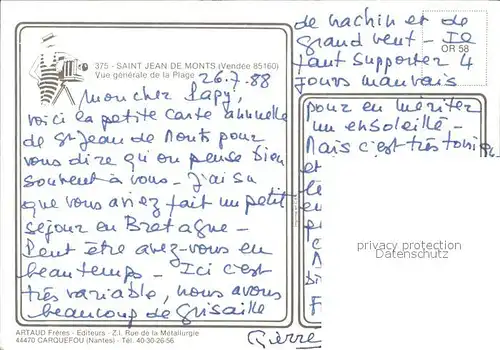 375 - SAINT JEAN DE MONTS (Vendée 85160)
Vue générale de la Plage
26.7.88
Mon cher Papy,
voici la petite carte annuelle
de St Jean de Monts pour
vous dire qu'on pense bien
souvent à vous - J'ai su
que vous aviez fait un petit
séjour en Bretagne -
Peut être avez-vous eu
beau temps - Ici c'est
très variable, nous avons
beaucoup de grisaille
ARTAUD Frères - Editeurs - Z.I. Rue de la Métallurgie
44470 CARQUEFOU (Nantes) - Tél. 40-30-26-56
de crachin et de
grand vent - Il
faut supporter 4
jours mauvais
pour en mériter
un ensoleillé -
Mais c'est très
et
OR 58
privacy protection
Datenschutz
Pierre